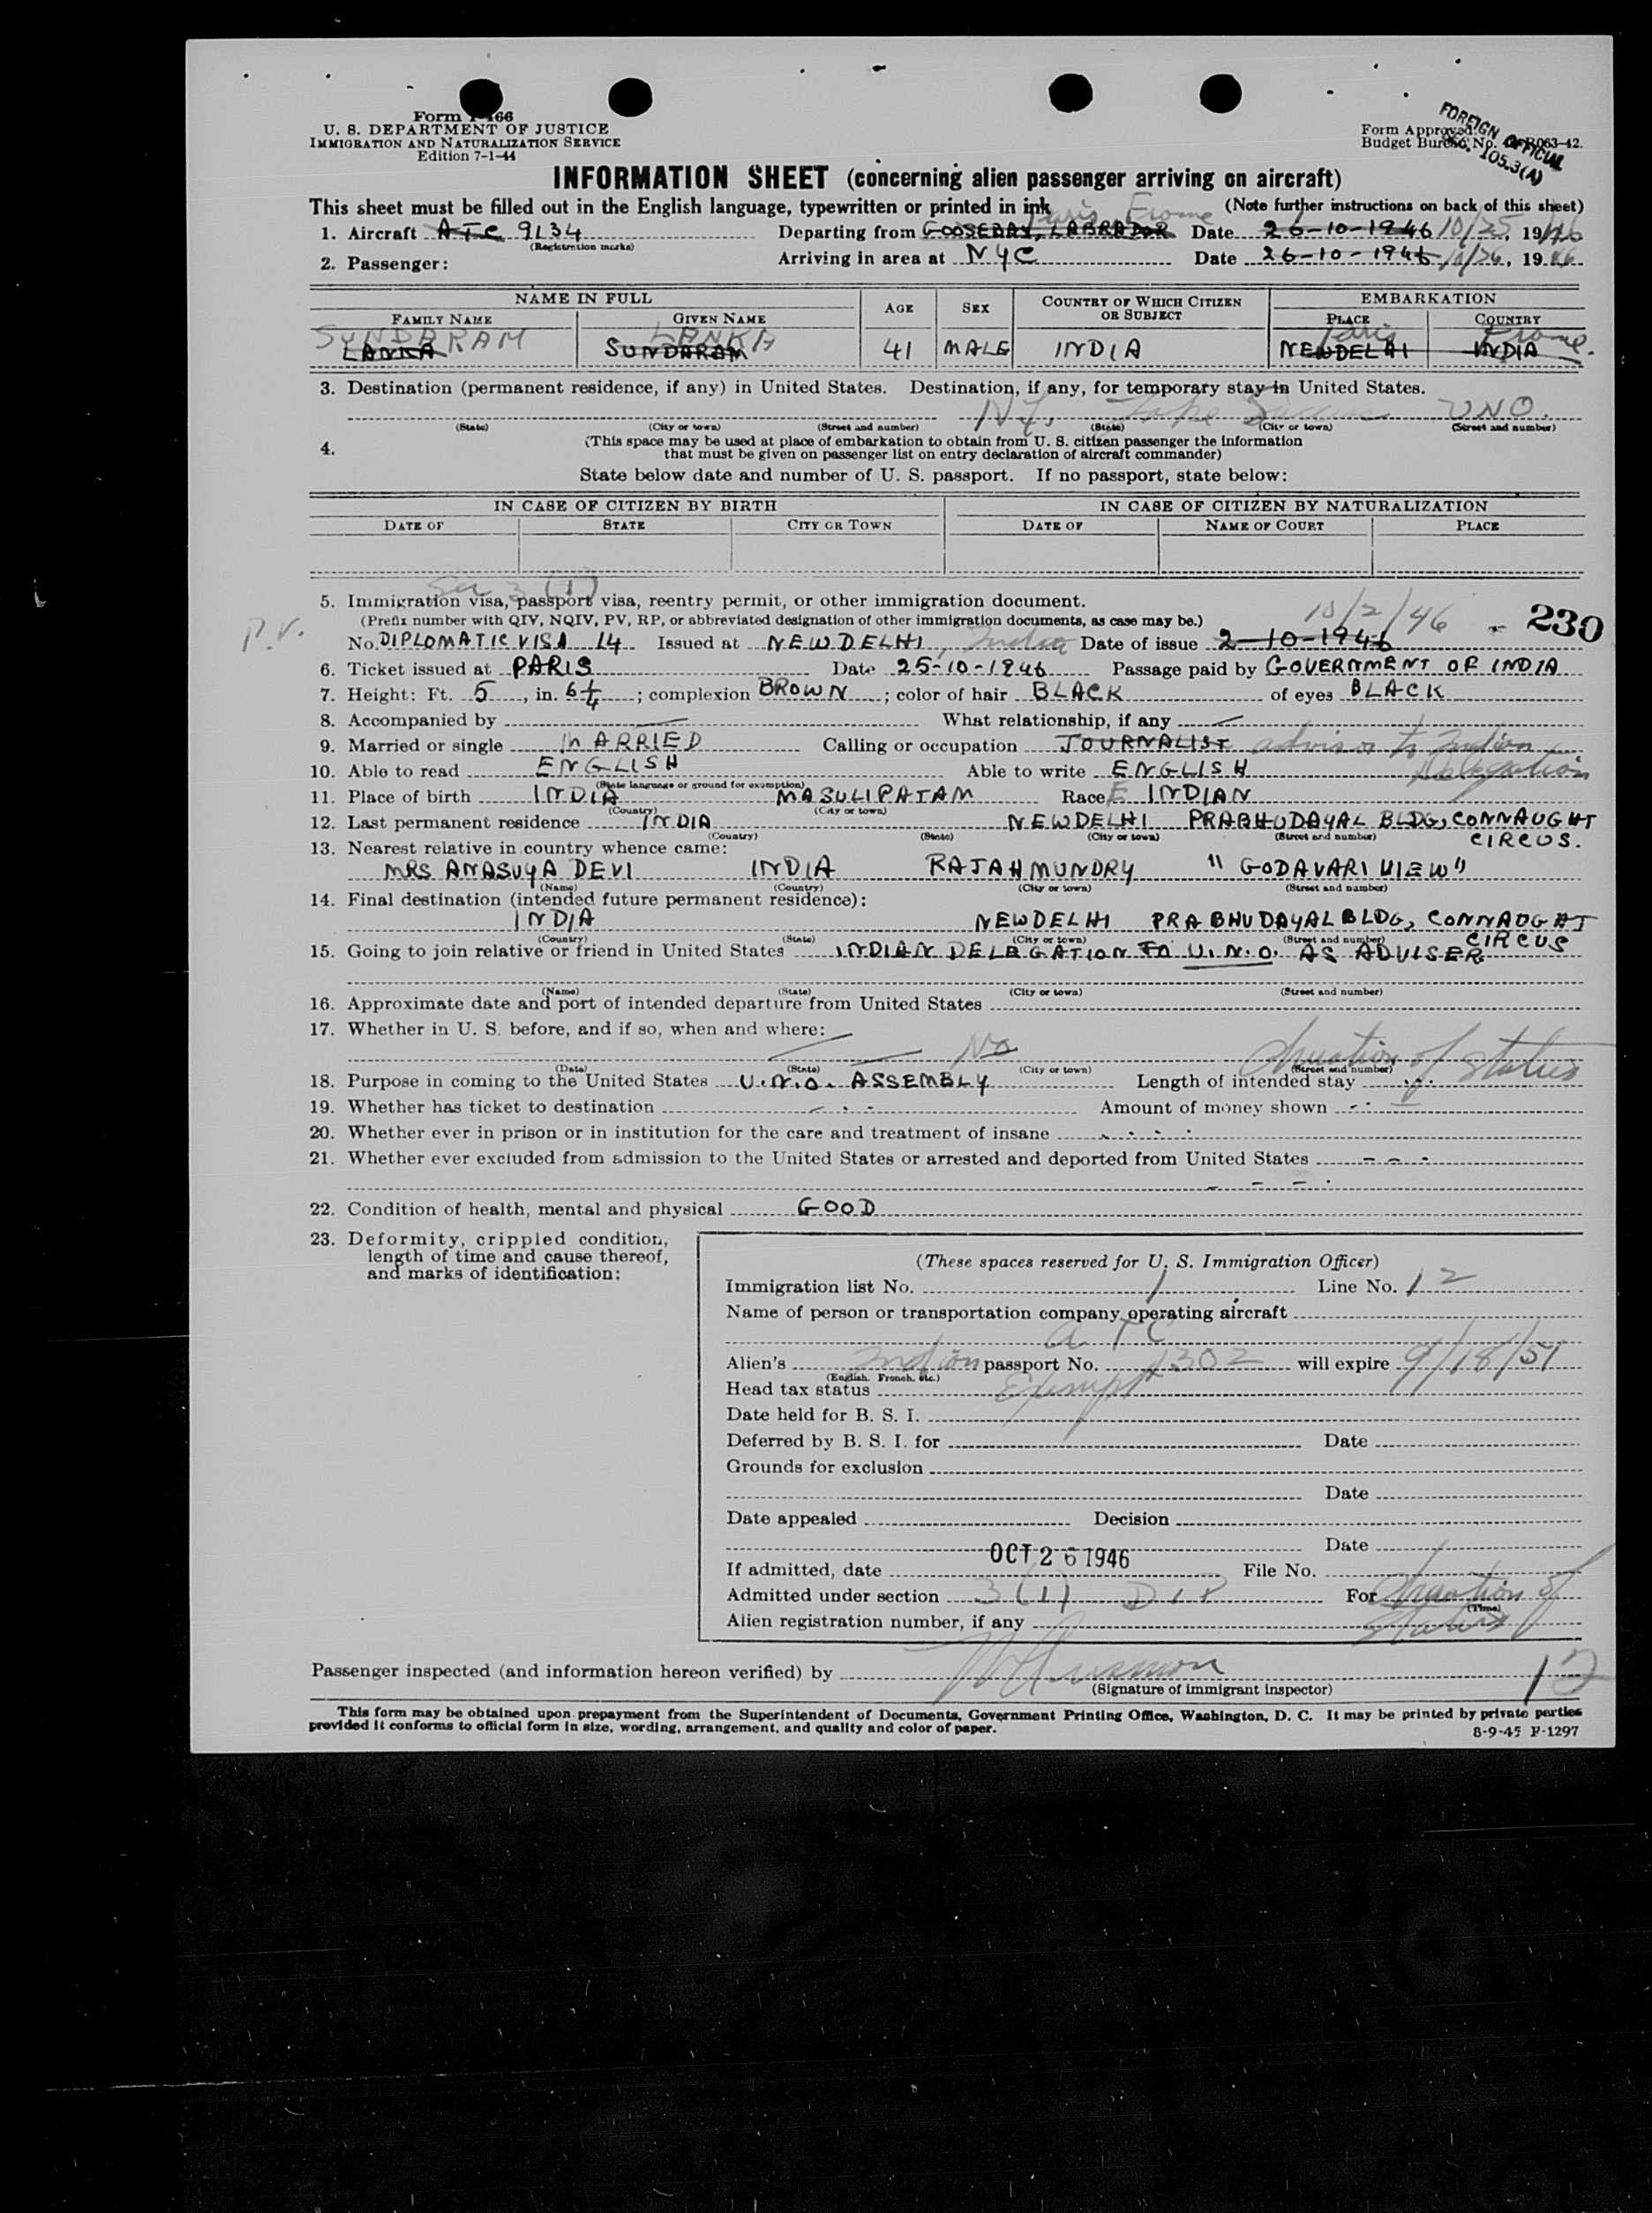 Form I-466
U. S. DEPARTMENT OF JUSTICE
IMMIGRATION AND NATURALIZATION SERVICE
Edition 7-1-44
Form Approved.
Budget Bureau No. R063-42.
FOREIGN OFFICIAL
SEC. 105.3(A)
INFORMATION SHEET (concerning alien passenger arriving on aircraft)
This sheet must be filled out in the English language, typewritten or printed in ink (Note further instructions on back of this sheet)
Paris, France
1. Aircraft ATC 9134 Departing from GOOSEBAY, LABRADOR Date 26-10-1946 10/25, 1946
(Registration marks)
2. Passenger: Arriving in area at NYC Date 26-10-1946 10/26, 1946
NAME IN FULL AGE SEX COUNTRY OF WHICH CITIZEN OR SUBJECT EMBARKATION
FAMILY NAME GIVEN NAME PLACE COUNTRY
SUNDARAM LANKA Paris France.
LANKA SUNDARAM 41 MALE INDIA NEWDELHI INDIA
3. Destination (permanent residence, if any) in United States. Destination, if any, for temporary stay in United States.
N.Y. Lake Success UNO.
(State) (City or town) (Street and number) (State) (City or town) (Street and number)
4. (This space may be used at place of embarkation to obtain from U. S. citizen passenger the information
that must be given on passenger list on entry declaration of aircraft commander)
State below date and number of U. S. passport. If no passport, state below:
IN CASE OF CITIZEN BY BIRTH IN CASE OF CITIZEN BY NATURALIZATION
DATE OF STATE CITY OR TOWN DATE OF NAME OF COURT PLACE
Sec 3 (1)
5. Immigration visa, passport visa, reentry permit, or other immigration document.
(Prefix number with QIV, NQIV, PV, RP, or abbreviated designation of other immigration documents, as case may be.) 10/2/46 - 230
P.V. No. DIPLOMATIC VISA 14 Issued at NEWDELHI, India Date of issue 2-10-1946
6. Ticket issued at PARIS Date 25-10-1946 Passage paid by GOVERNMENT OF INDIA
7. Height: Ft. 5, in. 6¼; complexion BROWN; color of hair BLACK of eyes BLACK
8. Accompanied by — What relationship, if any —
9. Married or single MARRIED Calling or occupation JOURNALIST advisor to Indian
Delegation
10. Able to read ENGLISH Able to write ENGLISH
(State language or ground for exemption)
11. Place of birth INDIA MASULIPATAM Race E. INDIAN
(Country) (City or town)
12. Last permanent residence INDIA NEWDELHI PRABHUDAYAL BLDG, CONNAUGHT
CIRCUS.
(Country) (State) (City or town) (Street and number)
13. Nearest relative in country whence came:
MRS ANASUYA DEVI INDIA RAJAHMUNDRY "GODAVARI VIEW"
(Name) (Country) (City or town) (Street and number)
14. Final destination (intended future permanent residence):
INDIA NEWDELHI PRABHUDAYAL BLDG, CONNAUGHT
CIRCUS
(Country) (State) (City or town) (Street and number)
15. Going to join relative or friend in United States INDIAN DELEGATION TO U.N.O. AS ADVISER
(Name) (State) (City or town) (Street and number)
16. Approximate date and port of intended departure from United States
17. Whether in U. S. before, and if so, when and where:
No duration of status
(Date) (State) (City or town) (Street and number)
18. Purpose in coming to the United States U.N.O. ASSEMBLY Length of intended stay
19. Whether has ticket to destination Amount of money shown
20. Whether ever in prison or in institution for the care and treatment of insane
21. Whether ever excluded from admission to the United States or arrested and deported from United States
22. Condition of health, mental and physical GOOD
23. Deformity, crippled condition,
length of time and cause thereof,
and marks of identification:
(These spaces reserved for U. S. Immigration Officer)
Immigration list No. 1 Line No. 12
Name of person or transportation company operating aircraft
ATC
Alien's Indian passport No. 1302 will expire 9/18/51
(English. French. etc.)
Head tax status Exempt
Date held for B. S. I.
Deferred by B. S. I. for Date
Grounds for exclusion
Date
Date appealed Decision
Date
If admitted, date OCT 26 1946 File No.
Admitted under section 3(1) DIP For duration of
(Time)
status
Alien registration number, if any
Passenger inspected (and information hereon verified) by 12
(Signature of immigrant inspector)
This form may be obtained upon prepayment from the Superintendent of Documents, Government Printing Office, Washington, D. C. It may be printed by private parties
provided it conforms to official form in size, wording, arrangement, and quality and color of paper.
8-9-45 F-1297